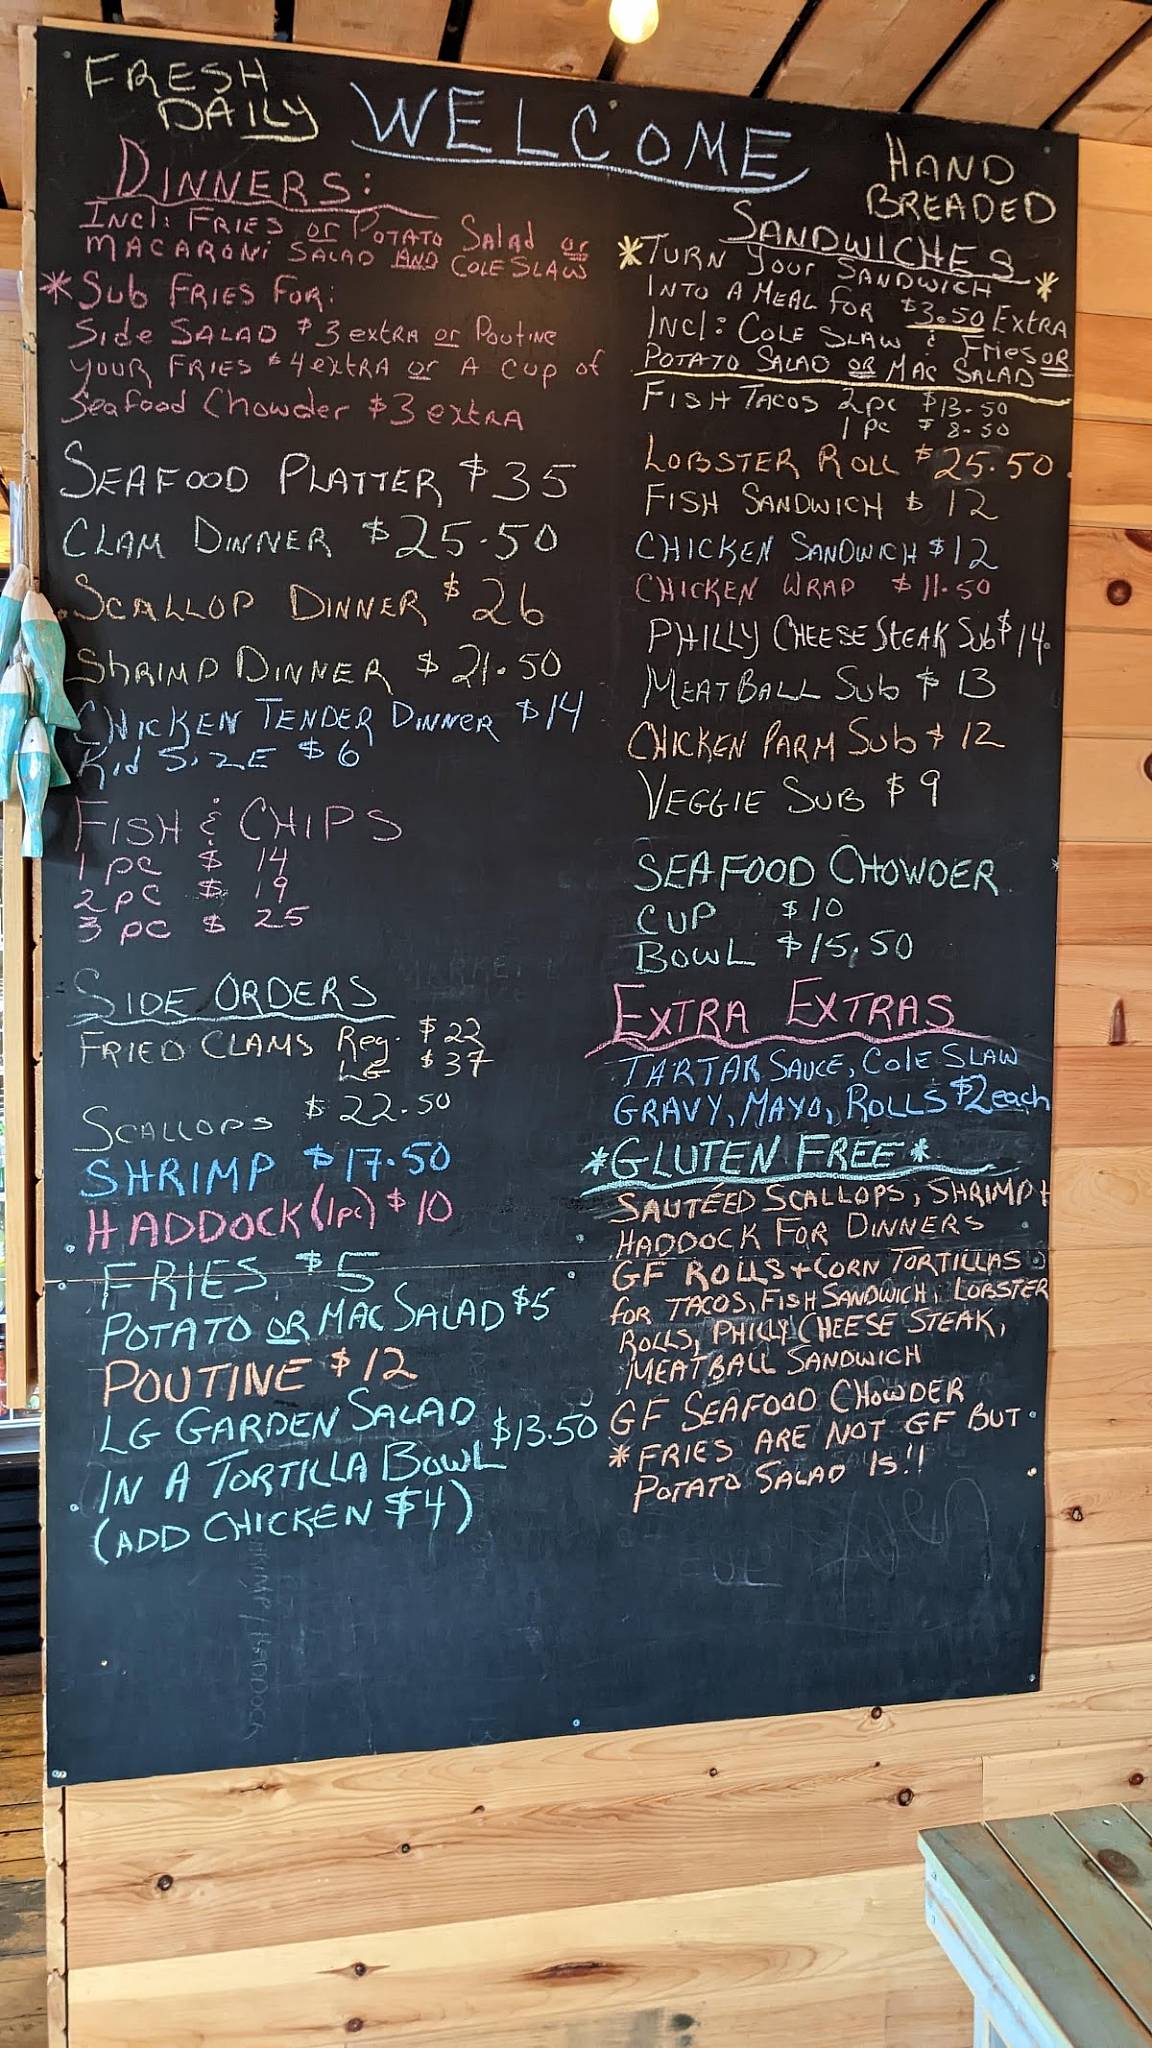 FRESH
DAILY
WELCOME
HAND
BREADED
DINNERS:
Incl: FRIES or POTATO Salad or
MACARONi SALAD AND COLE SLAW
*Sub FRIES FOR:
Side SALAD $3 extra or Poutine
your FRIES $4 extra or A cup of
Seafood Chowder $3 extra
SEAFOOD PLATTER $35
CLAM DINNER $25.50
SCALLOP DINNER $26
SHRIMP DINNER $21.50
CHICKEN TENDER DINNER $14
Kid SIZE $6
FISH & CHIPS
1 pc $ 14
2 pc $ 19
3 pc $ 25
SIDE ORDERS
FRIED CLAMS Reg. $22
LG $37
SCALLOPS $22.50
SHRIMP $17.50
HADDOCK (1pc) $10
FRIES $5
POTATO OR MAC SALAD $5
POUTINE $12
LG GARDEN SALAD
IN A TORTILLA BOWL $13.50
(ADD CHICKEN $4)
SANDWICHES
*TURN your SANDWICH *
INTO A MEAL FOR $3.50 Extra
Incl: COLE SLAW & Fries OR
POTATO SALAD OR MAC SALAD
FISH TACOS 2pc $13.50
1 pc $8.50
LOBSTER ROLL $25.50
FISH SANDWICH $12
CHICKEN SANDWICH $12
CHICKEN WRAP $11.50
PHILLY CHEESE STEAK Sub $14.
MEATBALL Sub $13
CHICKEN PARM Sub $12
VEGGIE SUB $9
SEAFOOD CHOWDER
CUP $10
BOWL $15.50
EXTRA EXTRAS
TARTAR SAUCE, COLE SLAW
GRAVY, MAYO, ROLLS $2 each
*GLUTEN FREE*
SAUTÉED SCALLOPS, SHRIMP +
HADDOCK FOR DINNERS
GF ROLLS + CORN TORTILLAS
for TACOS, FISH SANDWICH, LOBSTER
ROLLS, PHILLY CHEESE STEAK,
MEATBALL SANDWICH
GF SEAFOOD CHOWDER
*FRIES ARE NOT GF BUT
POTATO SALAD IS!!